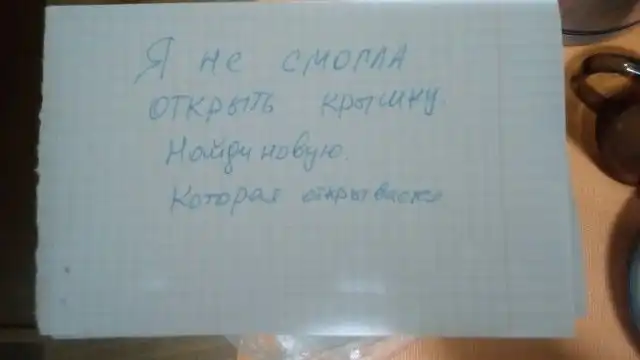 Я не смогла
открыть крышку.
Найди новую.
Которая открывается